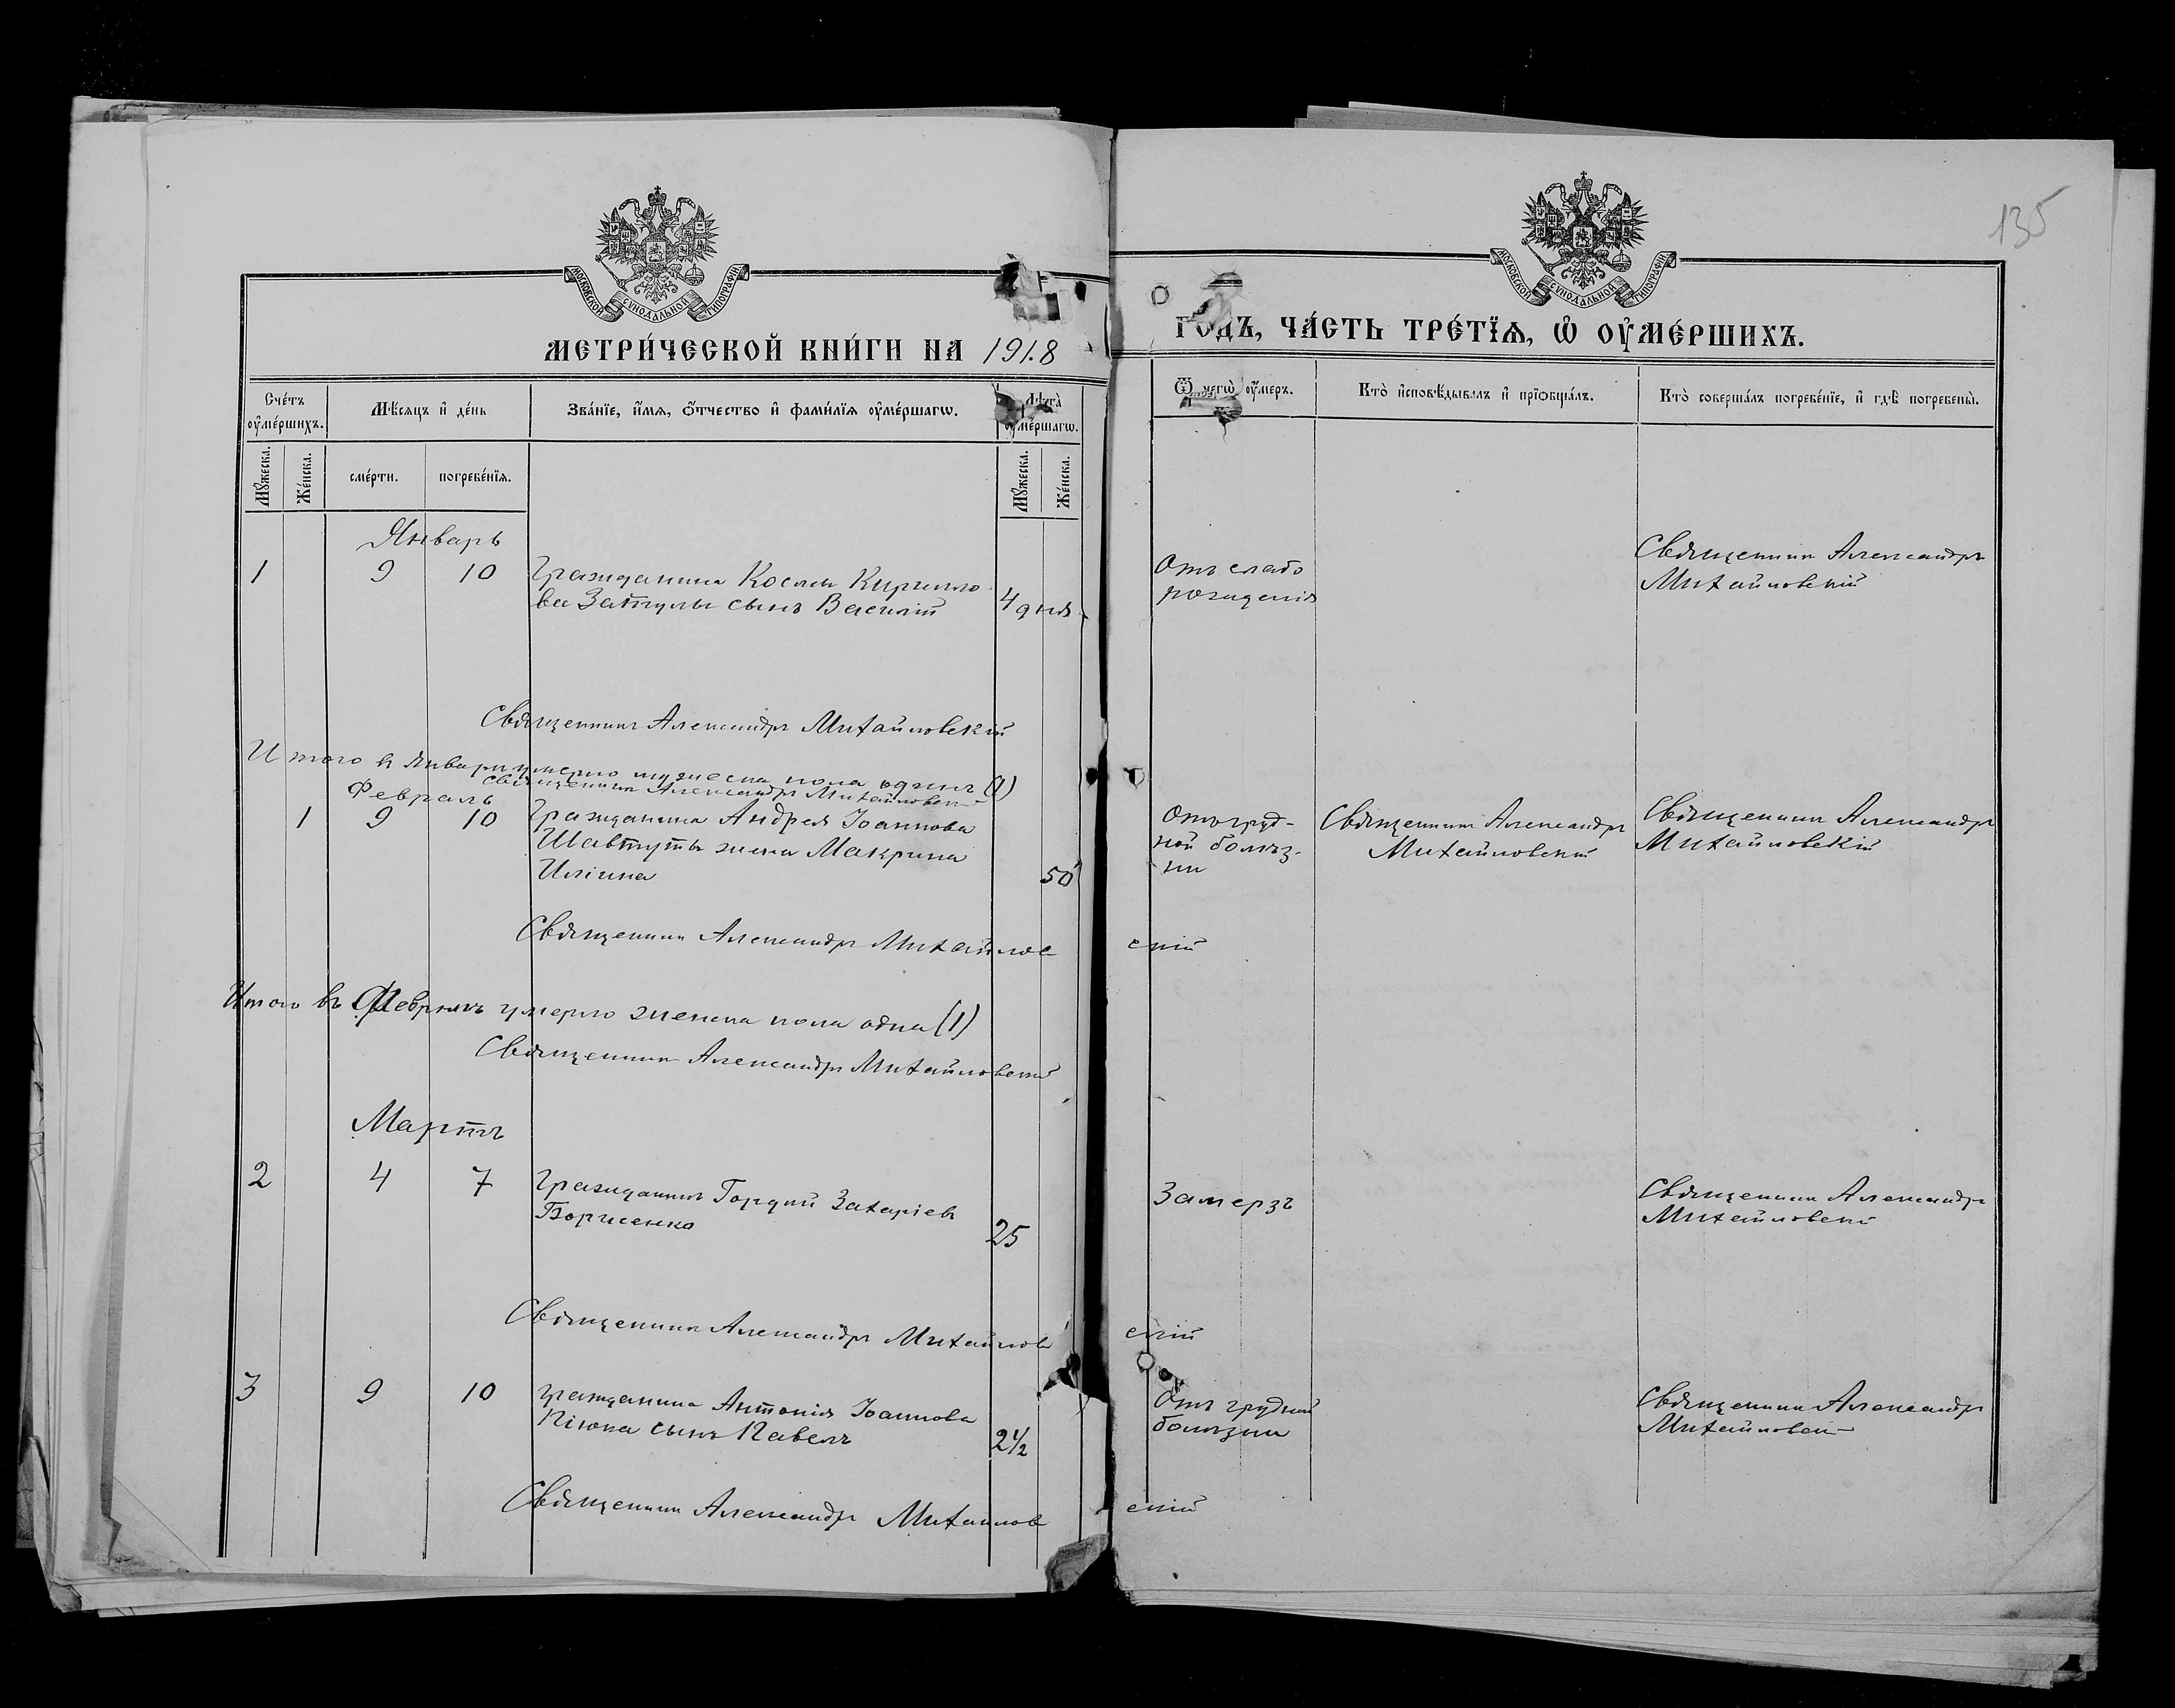 135
МОСКОВСКОЙ СѴНОДАЛЬНОЙ ТИПОГРАФІИ
МОСКОВСКОЙ СѴНОДАЛЬНОЙ ТИПОГРАФІИ
МЕТРИ́ЧЕСКОЙ КНИ́ГИ НА 1918
ГОДЪ, ЧА́СТЬ ТРЕ́ТЇѦ, Ѡ҆ ОУ҆МЕ́РШИХЪ.
Сче́тъ оу҆ме́ршихъ.
Мѣ́сяцъ и҆ де́нь
Зва́нїе, и҆́мѧ, ѻ҆́тчество и҆ фами́лїѧ оу҆ме́ршагѡ.
Лѣ́та оу҆ме́ршагѡ.
Ѿ чегѡ̀ оу҆́меръ.
Кто̀ и҆сповѣ́дывалъ и҆ прїѻбща́лъ.
Кто̀ соверша́лъ погребе́нїе, и҆ гдѣ̀ погребены̀.
Мꙋ́жеска.
Же́нска.
сме́рти.
погребе́нїѧ.
Мꙋ́жеска.
Же́нска.
Январь
1 9 10 Гражданина Космы Кирилло
ва Затулы сынъ Василій 4 дня
Отъ слабо
рожденія
Священникъ Александръ
Михайловскій
Священникъ Александръ Михайловскій
Итого в Январи умерло мужеска пола одинъ (1)
Священникъ Александръ Михайловскій
Февраль
1 9 10 Гражданина Андрея Іоаннова
Шавтуты жена Макрина
Иліина 50
Отъ груд-
ной болѣз-
ни
Священникъ Александръ
Михайловскій
Священникъ Александръ
Михайловскій
Священникъ Александръ Михайлов
скій
Итого въ Февралѣ умерло женска пола одна (1)
Священникъ Александръ Михайловскій
Мартъ
2 4 7 Гражданинъ Гордій Захаріевъ
Борисенко 25
Замерзъ
Священникъ Александръ
Михайловскій
Священникъ Александръ Михайлов
скій
3 9 10 Гражданина Антонія Іоаннова
Кіюка сынъ Павелъ 2½
Отъ грудной
болѣзни
Священникъ Александръ
Михайловскій
Священникъ Александръ Михайлов
скій